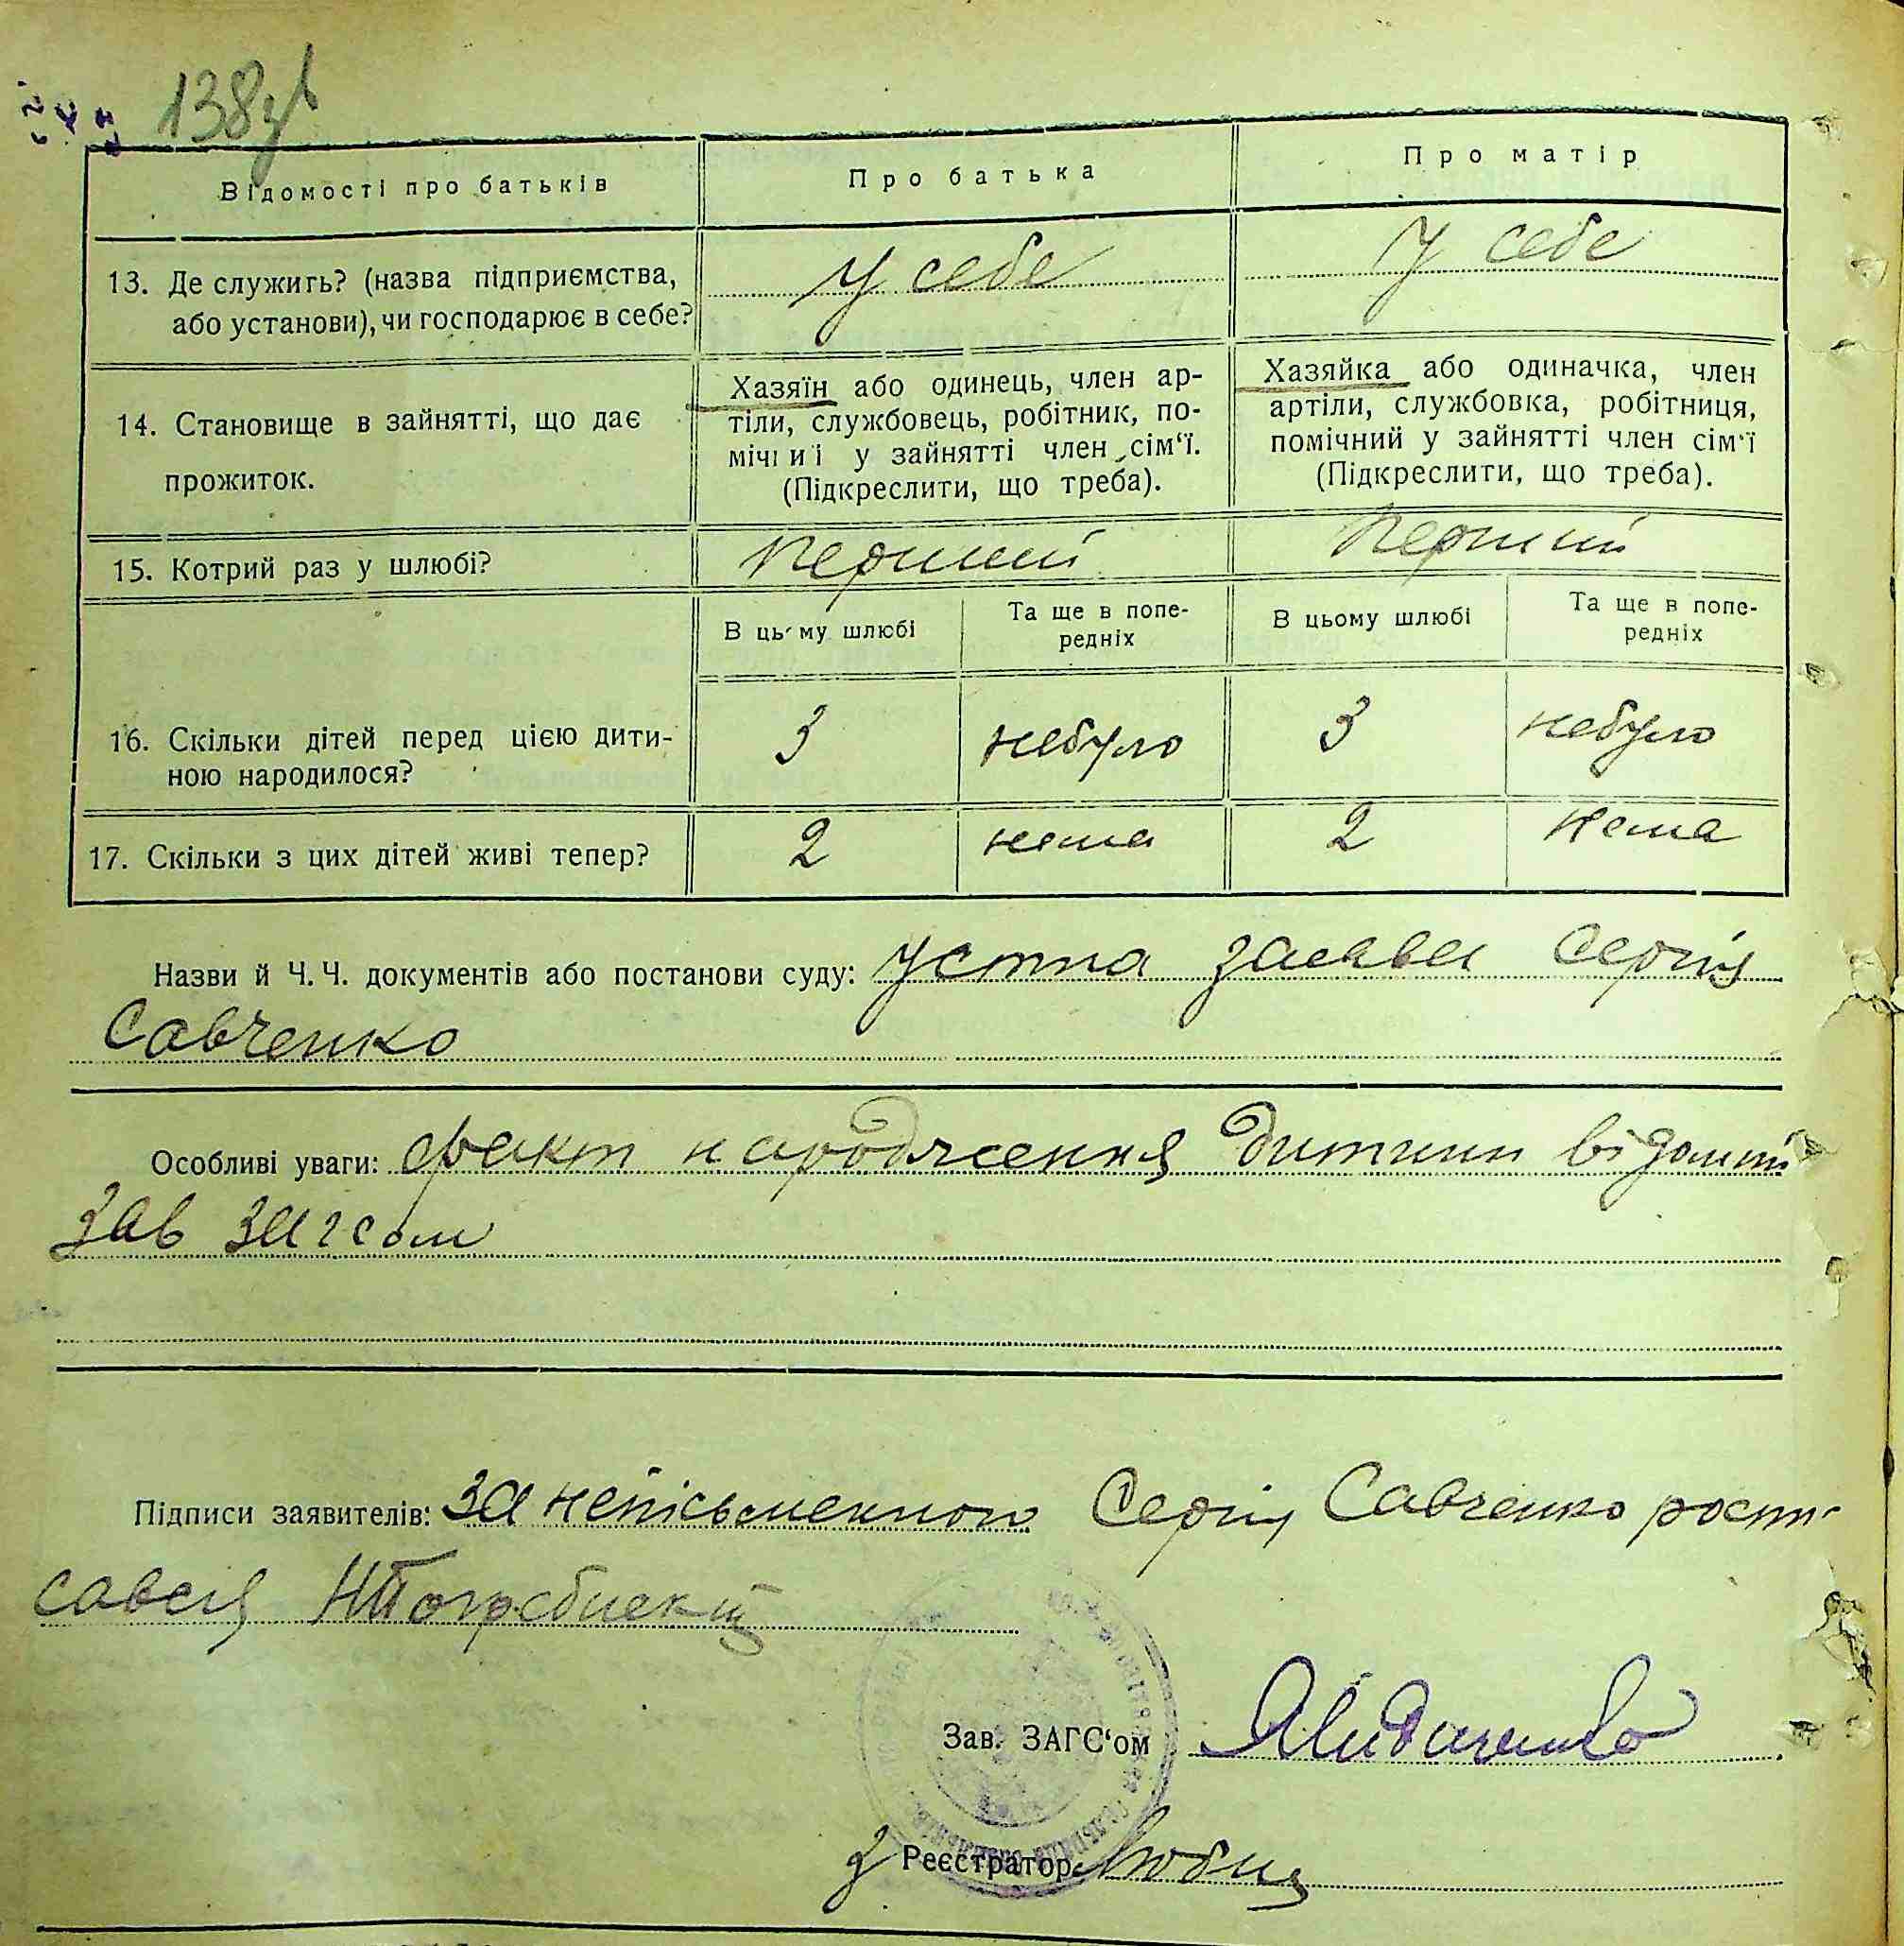 138зв
Відомості про батьків
Про батька
Про матір
13. Де служить? (назва підприємства,
або установи), чи господарює в себе?
У себе
У себе
14. Становище в зайнятті, що дає
прожиток.
Хазяїн або одинець, член ар-
тіли, службовець, робітник, по-
мічний у зайнятті член сім‘ї.
(Підкреслити, що треба).
Хазяйка або одиначка, член
артіли, службовка, робітниця,
помічний у зайнятті член сім‘ї
(Підкреслити, що треба).
15. Котрий раз у шлюбі?
перший
перший
В цьому шлюбі
Та ще в попе-
редніх
В цьому шлюбі
Та ще в попе-
редніх
16. Скільки дітей перед цією дити-
ною народилося?
3
небуло
3
небуло
17. Скільки з цих дітей живі тепер?
2
нема
2
нема
Назви й Ч. Ч. документів або постанови суду: устна заява Сергія
Савченко
Особливі уваги: факт народження дитини відомий
зав загсом
Підписи заявителів: за непісьменного Сергія Савченко роспи-
савсія
Зав. ЗАГС‘ом
Реєстратор